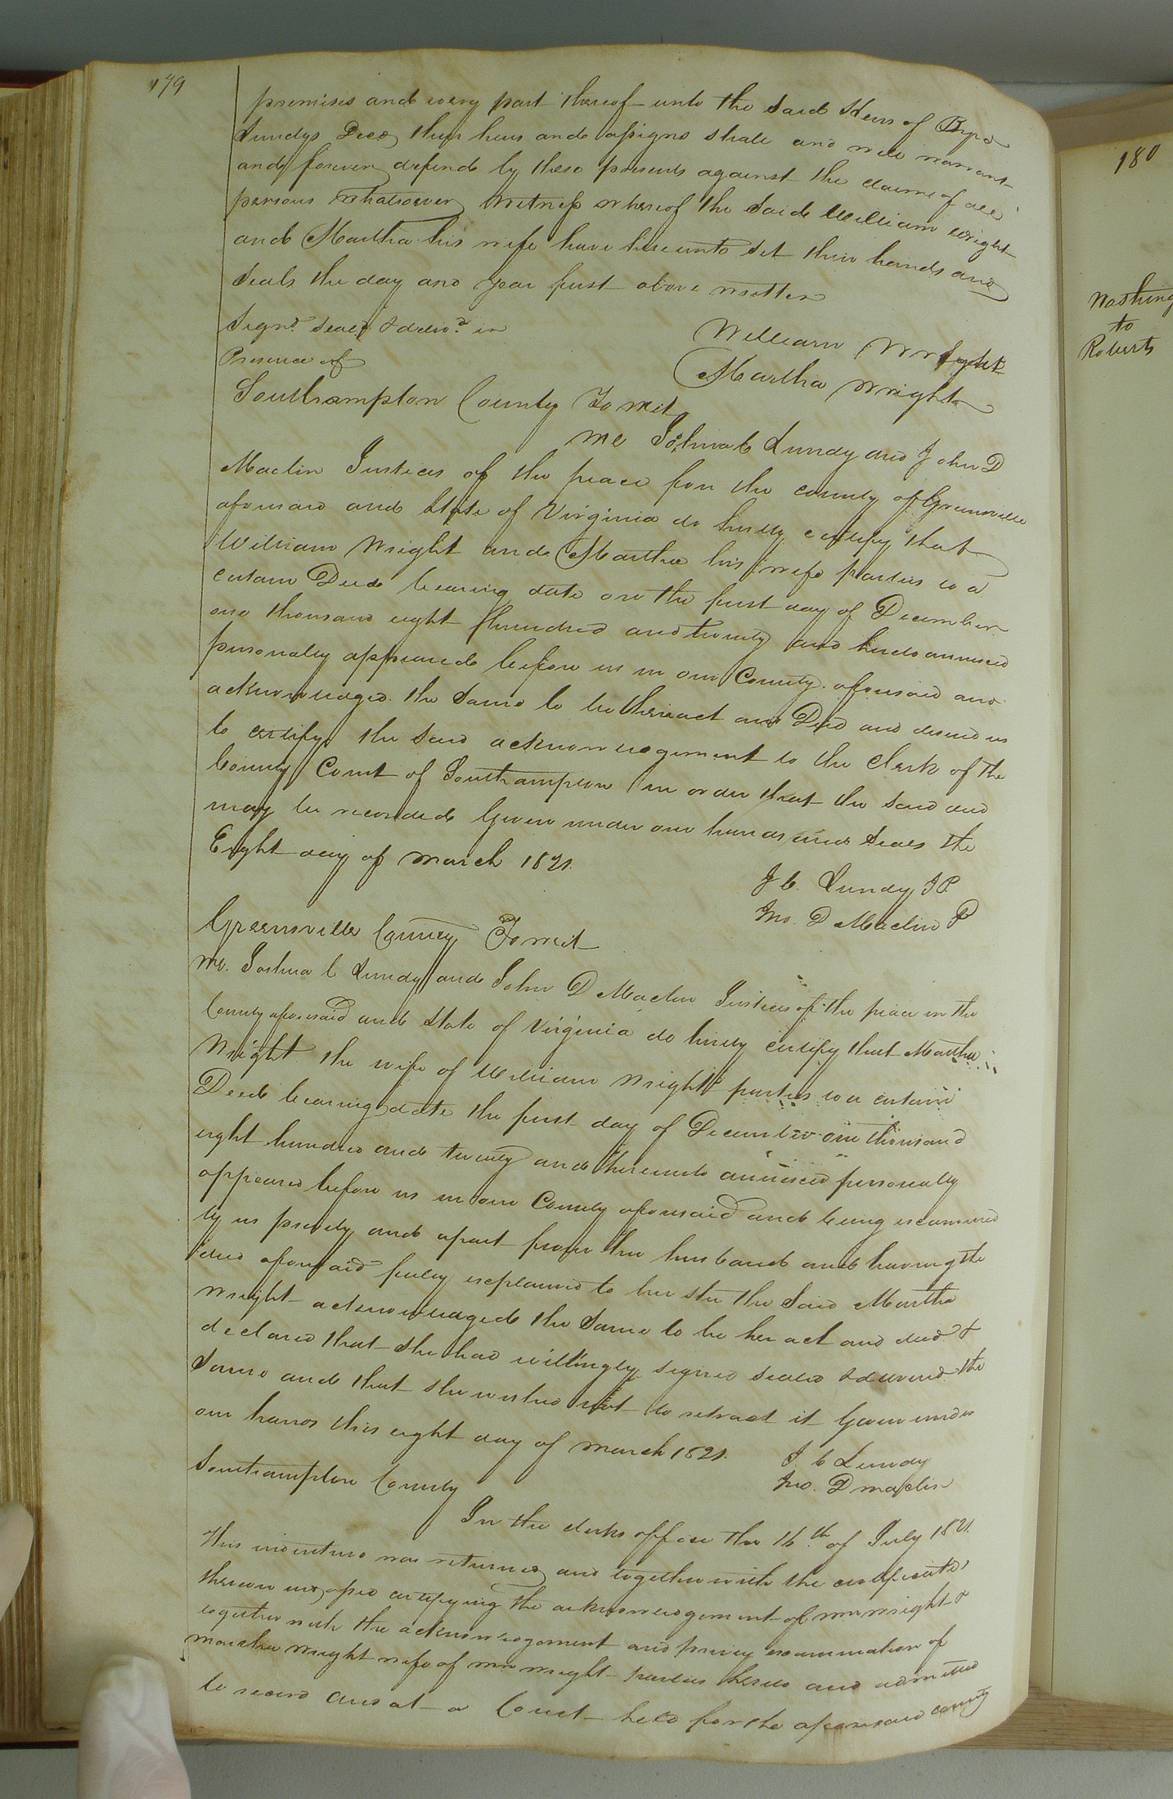 179
premises and every part thereof unto the said Heirs of Byrd
Lundys Decd their heirs and assigns shall and will warrant
and forever defend by these presents against the claims of all
persons whatsoever Witness whereof the said William Wright
and Martha his wife have hereunto set their hands and
seals the day and year first above written
Signd. seald & delivd. in
Presence of
William Wright
Martha Wright
Southampton County To wit
We Joshua C Lundy and John D
Maclin Justices of the peace for the county of Greensville
aforesaid and State of Virginia do hereby certify that
William Wright and Martha his wife parties to a
certain Deed bearing date on the first day of December
one thousand eight hundred and twenty and hereto annexed
personally appeared before us in our County aforesaid and
acknowledged the same to be their act and Deed and desired us
to certify the said acknowledgement to the Clerk of the
County Court of Southampton in order that the said deed
may be recorded Given under our hands and seals the
Eight day of March 1821.
J C. Lundy JP
Jno. D Maclin P
Greensville County To wit
We. Joshua C Lundy and John D Maclin Justices of the peace in the
County aforesaid and State of Virginia do hereby certify that Martha
Wright the wife of William Wright parties to a certain
Deed bearing date the first day of December one thousand
eight hundred and twenty and hereunto annexed personally
appeared before us in our County aforesaid and being examined
by us privily and apart from her husband and having the
deed aforesaid fully explained to her she the said Martha
Wright acknowledged the same to be her act and deed &
declared that she had willingly signed sealed & delivered the
same and that she wished not to retract it Given under
our hands this eight day of March 1821.
J. C Lundy
Jno. D Maclin
Southampton County
In the clerks office the 16th. of July 1821.
This indenture was returned and together with the certificates
thereon certifying the acknowledgement of Wm Wright &
together with the acknowledgement and privy examination of
Martha Wright wife of Wm Wright parties hereto and admitted
to record and at a Court held for the aforesaid county
180
to
Roberts